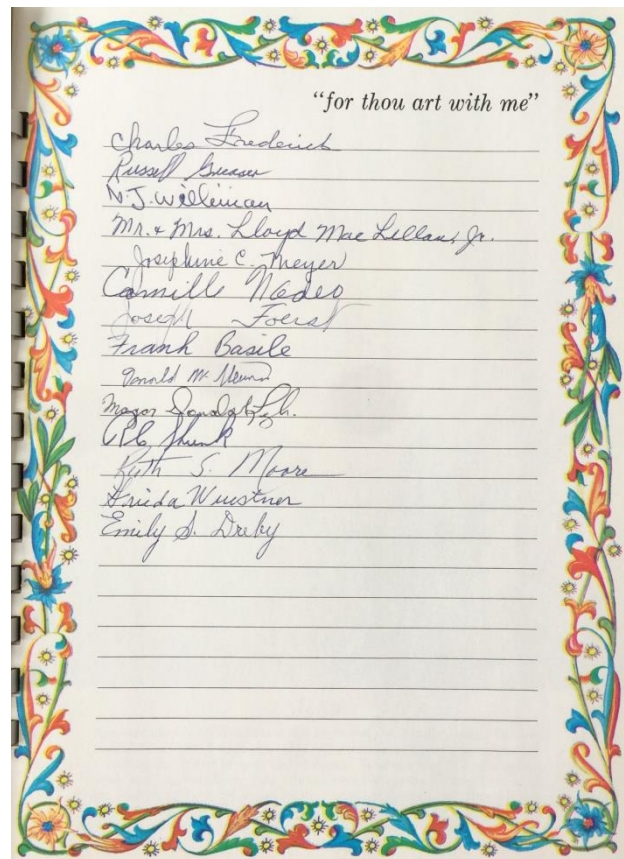 "for thou art with me"
Charles Frederick
Russell
N.J. Williman
Mr. & Mrs. Lloyd Mac Lellan, Jr.
Josephine C. Meyer
Camille Nadeo
Joseph Foerst
Frank Basile
Donald Mc
Major
Shunk
Ruth S. Moore
Frieda Wuestner
Emily S. Dreby